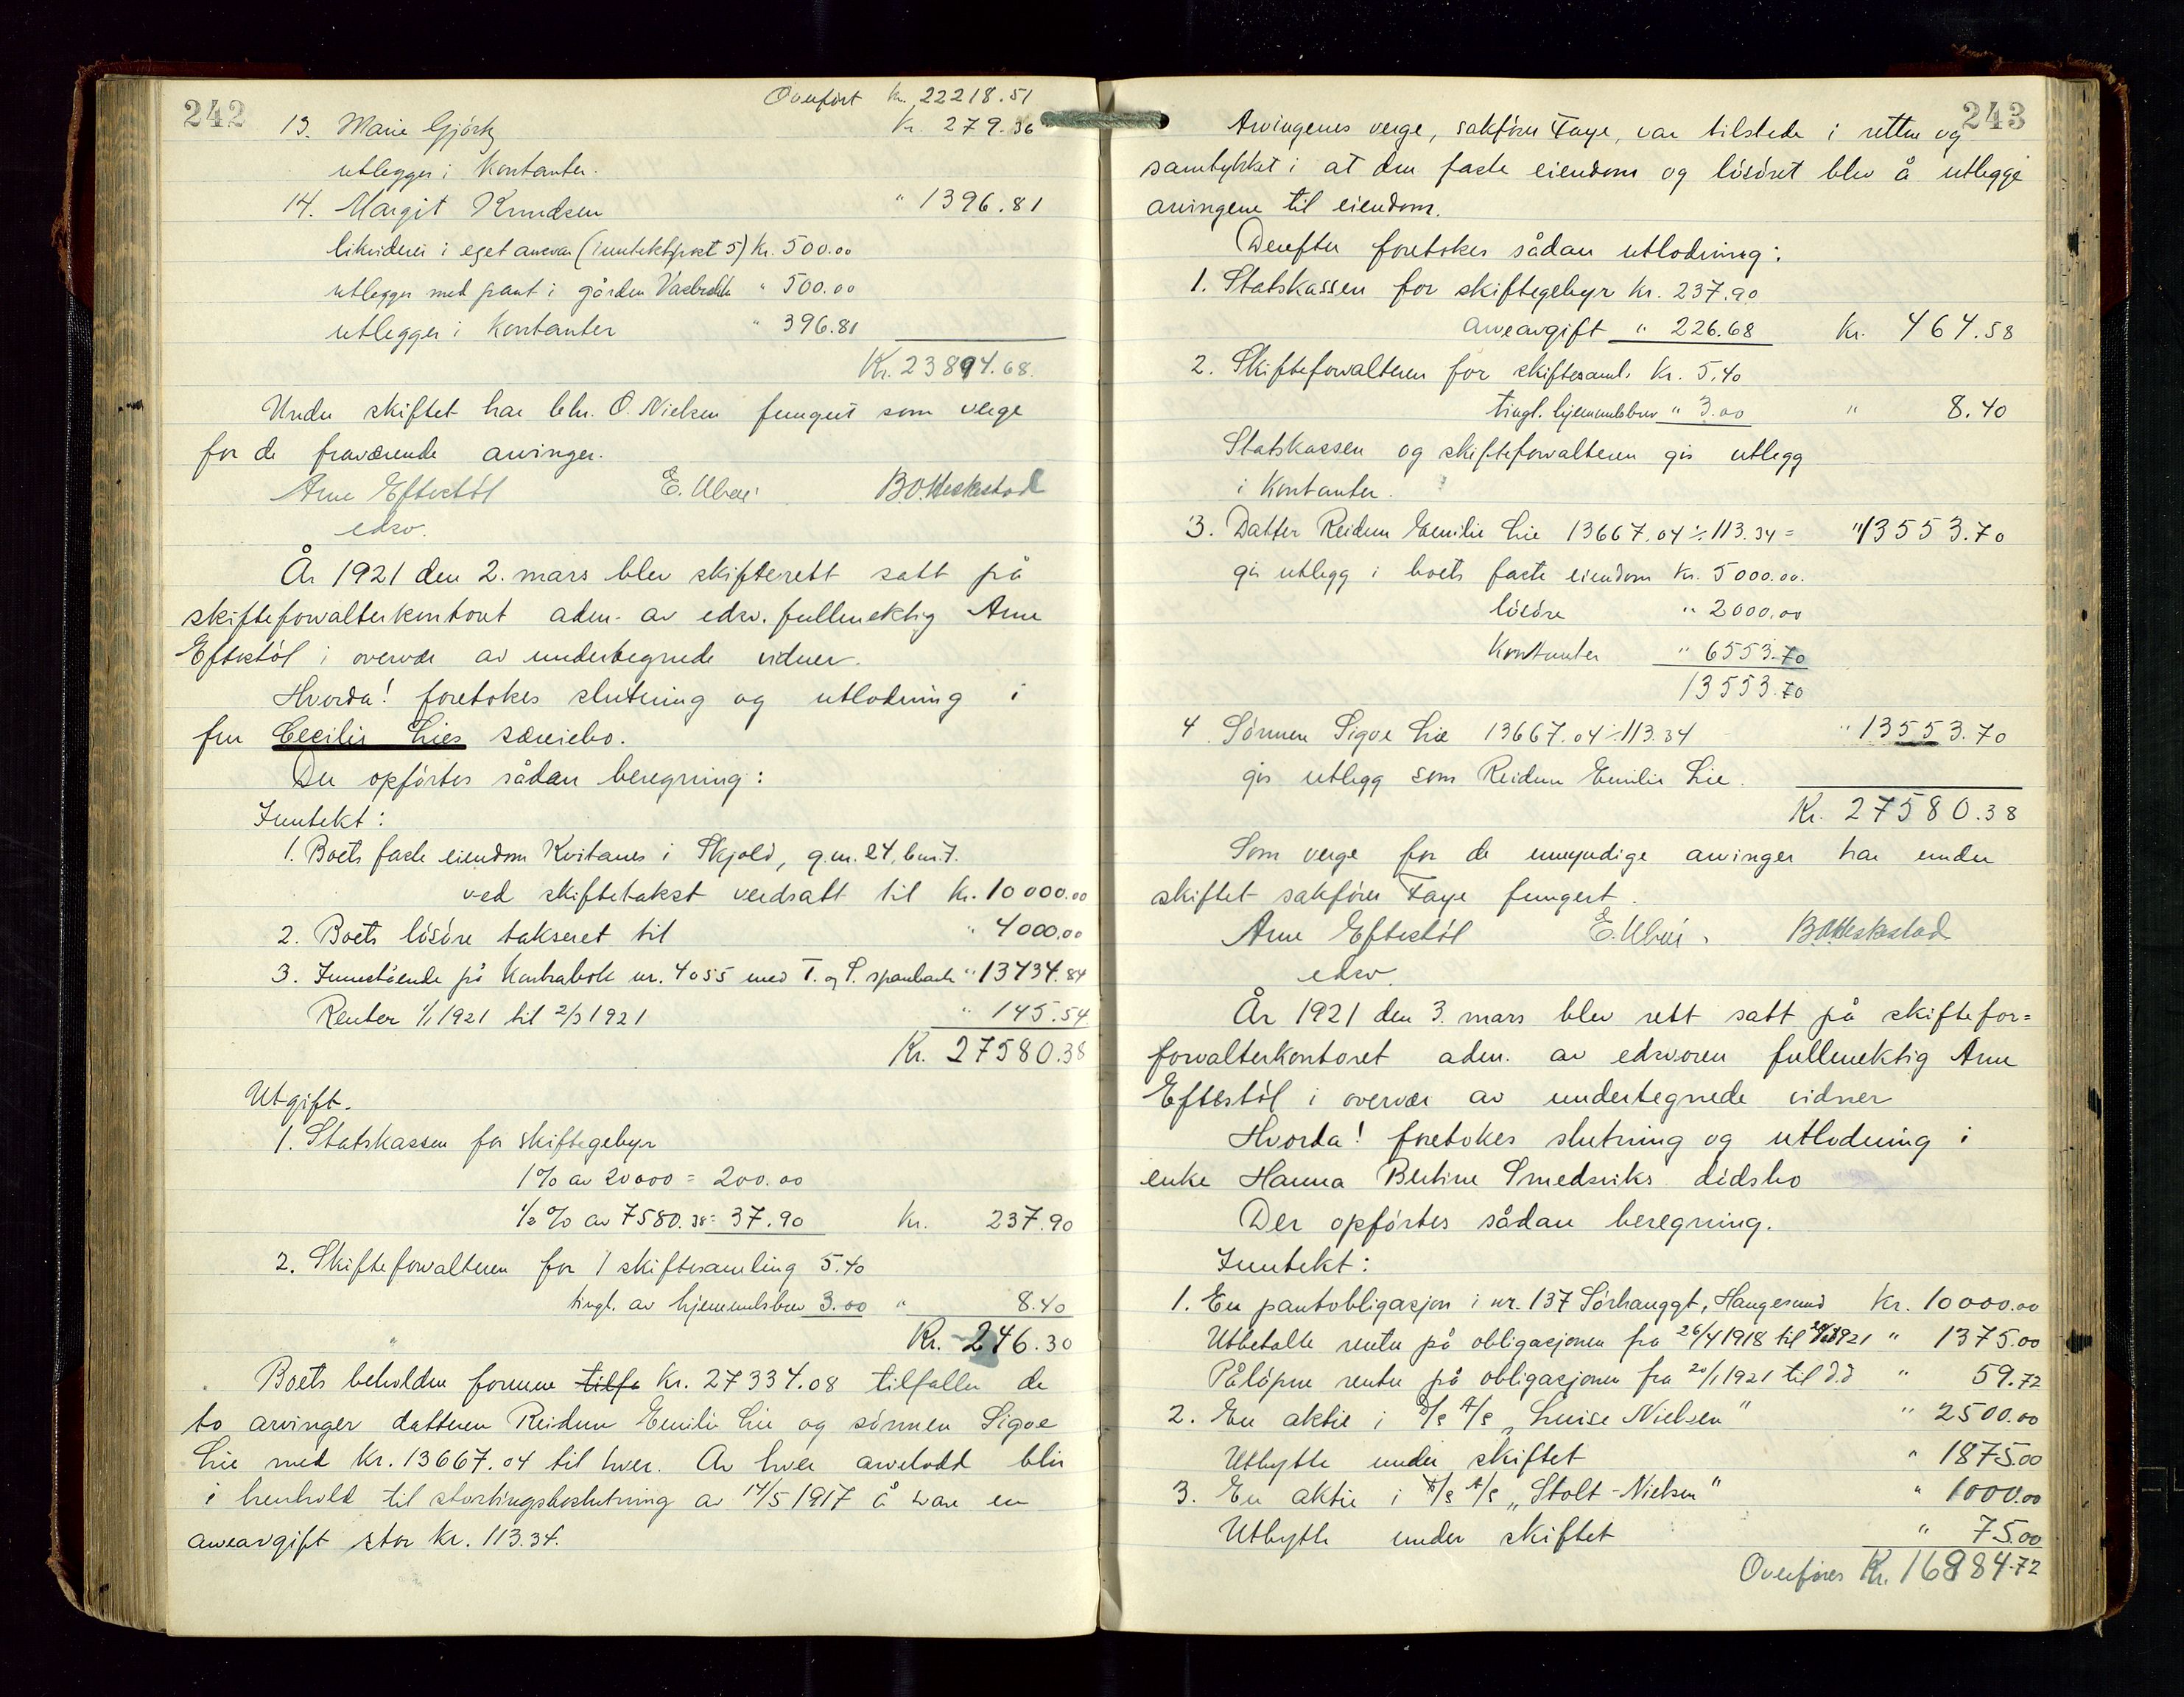 242
Overført Kr. 22218.51
13. Marie Gjörtz Kr. 279.36
utlegges i kontanter.
14. Margit Knudsen " 1396.81
likviderer i eget ansvar (inntektspost 5) Kr. 500.00
utlegges med pant i gården " 500.00
utlegges i kontanter " 396.81
Kr. 23894.68.
Under skiftet har bhr. O. Nielsen fungert som verge
for de fraværende arvinger.
Arne Eftestöl E. B.O. Heskestad
edsv.
År 1921 den 2. mars blev skifterett satt på
skifteforvalterkontoret adm. av edsv. fullmektig Arne
Eftestöl i overvær av undertegnede vidner.
Hvorda! foretokes slutning og utlodning i
fru Cecilie Lies særeiebo.
Der opførtes sådan beregning:
Inntekt:
1. Boets faste eiendom Kvitanes i Skjold, g.nr. 24, b.nr. 7.
ved skiftetakst verdsatt til Kr. 10000.00
2. Boets lösöre takseret til " 4000.00
3. Innestående på kontrabok nr. 4055 med T. og S. sparebank " 13434.84
Renter 1/1 1921 til 2/3 1921 " 145.54
Kr. 27580.38
Utgift.
1. Statskassen for skiftegebyr
1% av 20000 = 200.00
1/2 % av 7580.38 = 37.90 Kr. 237.90
2. Skifteforvalteren for 1 skiftesamling 5.40
tingl. av hjemmelsbrev 3.00 " 8.40
Kr. 246.30
Boets beholdne formue tilfa Kr. 27334.08 tilfaller de
to arvinger datteren Reidun Emilie Lie og sönnen Sigve
Lie med Kr. 13667.04 til hver. Av hver arvelodd blir
i henhold til stortingsbeslutning av 14/5 1917 å svare en
arveavgift stor Kr. 113.34.
243
Arvingenes verge, sakfører Faye, var tilstede i retten og
samtykket i at den faste eiendom og lösöret blev å utlegge
arvingene til eiendom.
Derefter foretokes sådan utlodning:
1. Statskassen for skiftegebyr Kr. 237.90
arveavgift " 226.68 Kr. 464.58
2. Skifteforvalteren for skiftesaml. Kr. 5.40
tingl. hjemmelsbrev " 3.00 " 8.40
Statskassen og skifteforvalteren gis utlegg
i kontanter.
3. Datter Reidun Emilie Lie 13667.04 ÷ 113.34 = " 13553.70
gis utlegg i boets faste eiendom Kr. 5000.00.
lösöre " 2000.00
Kontanter " 6553.70
13553.70
4. Sönnen Sigve Lie 13667.04 ÷ 113.34 " 13553.70
gis utlegg som Reidun Emilie Lie.
Kr. 27580.38
Som verge for de umyndige arvinger har under
skiftet sakfører Faye fungert.
Arne Eftestöl E. B.O. Heskestad
edsv.
År 1921 den 3. mars blev rett satt på skiftefor=
forvalterkontoret adm. av edsvoren fullmektig Arne
Eftestöl i overvær av undertegnede vidner
Hvorda! foretokes slutning og utlodning i
enke Hanna Bertine Smedsviks dödsbo
Der opförtes sådan beregning.
Inntekt:
1. En pantobligasjon i nr. 137 Sörhauggt, Haugesund Kr. 10000.00
Utbetalte renter på obligasjonen fra 26/4 1918 til 1921 " 1375.00
Pålöpne renter på obligasjonen fra 20/1 1921 til d.d " 59.72
2. En aktie i D/S A/S „Luise Nielsen" " 2500.00
Utbytte under skiftet " 1875.00
3. En aktie i D/S A/S „Stolt-Nielsen" " 1000.00
Utbytte under skiftet " 75.00
Overföres Kr. 16884.72